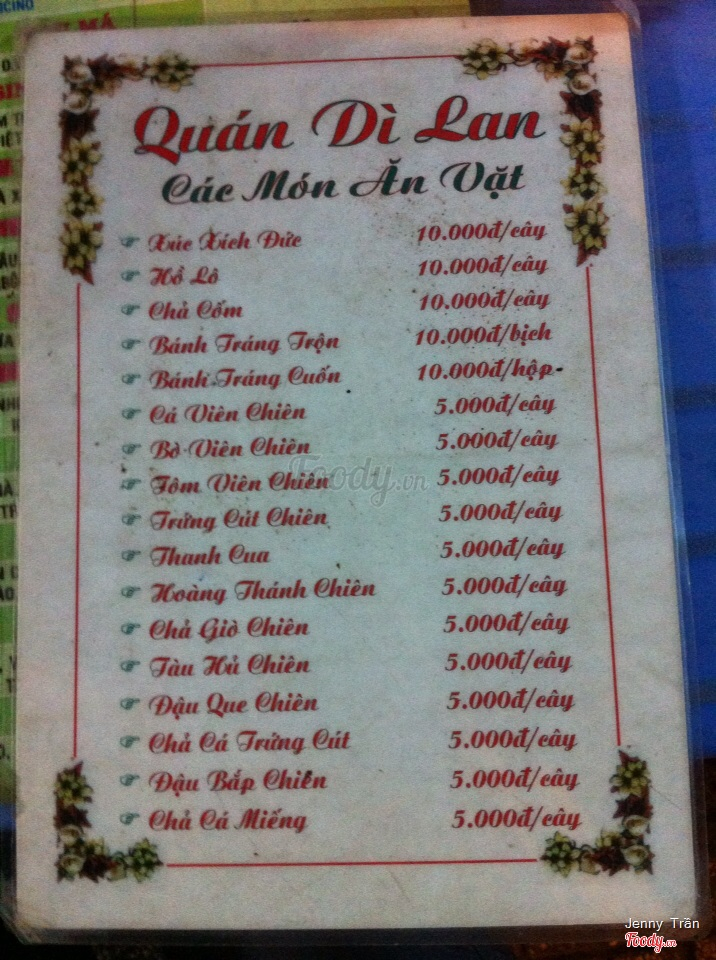 Quán Dì Lan
Các Món Ăn Vặt
Xúc Xích Đức 10.000đ/cây
Hồ Lô 10.000đ/cây
Chả Cốm 10.000đ/cây
Bánh Tráng Trộn 10.000đ/bịch
Bánh Tráng Cuốn 10.000đ/hộp
Cá Viên Chiên 5.000đ/cây
Bò Viên Chiên 5.000đ/cây
Tôm Viên Chiên 5.000đ/cây
Trứng Cút Chiên 5.000đ/cây
Thanh Cua 5.000đ/cây
Hoàng Thánh Chiên 5.000đ/câg
Chả Giò Chiên 5.000đ/cây
Tàu Hủ Chiên 5.000đ/cây
Đậu Que Chiên 5.000đ/cây
Chả Cá Trứng Cút 5.000đ/cây
Đậu Bắp Chiên 5.000đ/cây
Chả Cá Miếng 5.000đ/cây
Foody.vn
Jenny Trần
Foody.vn